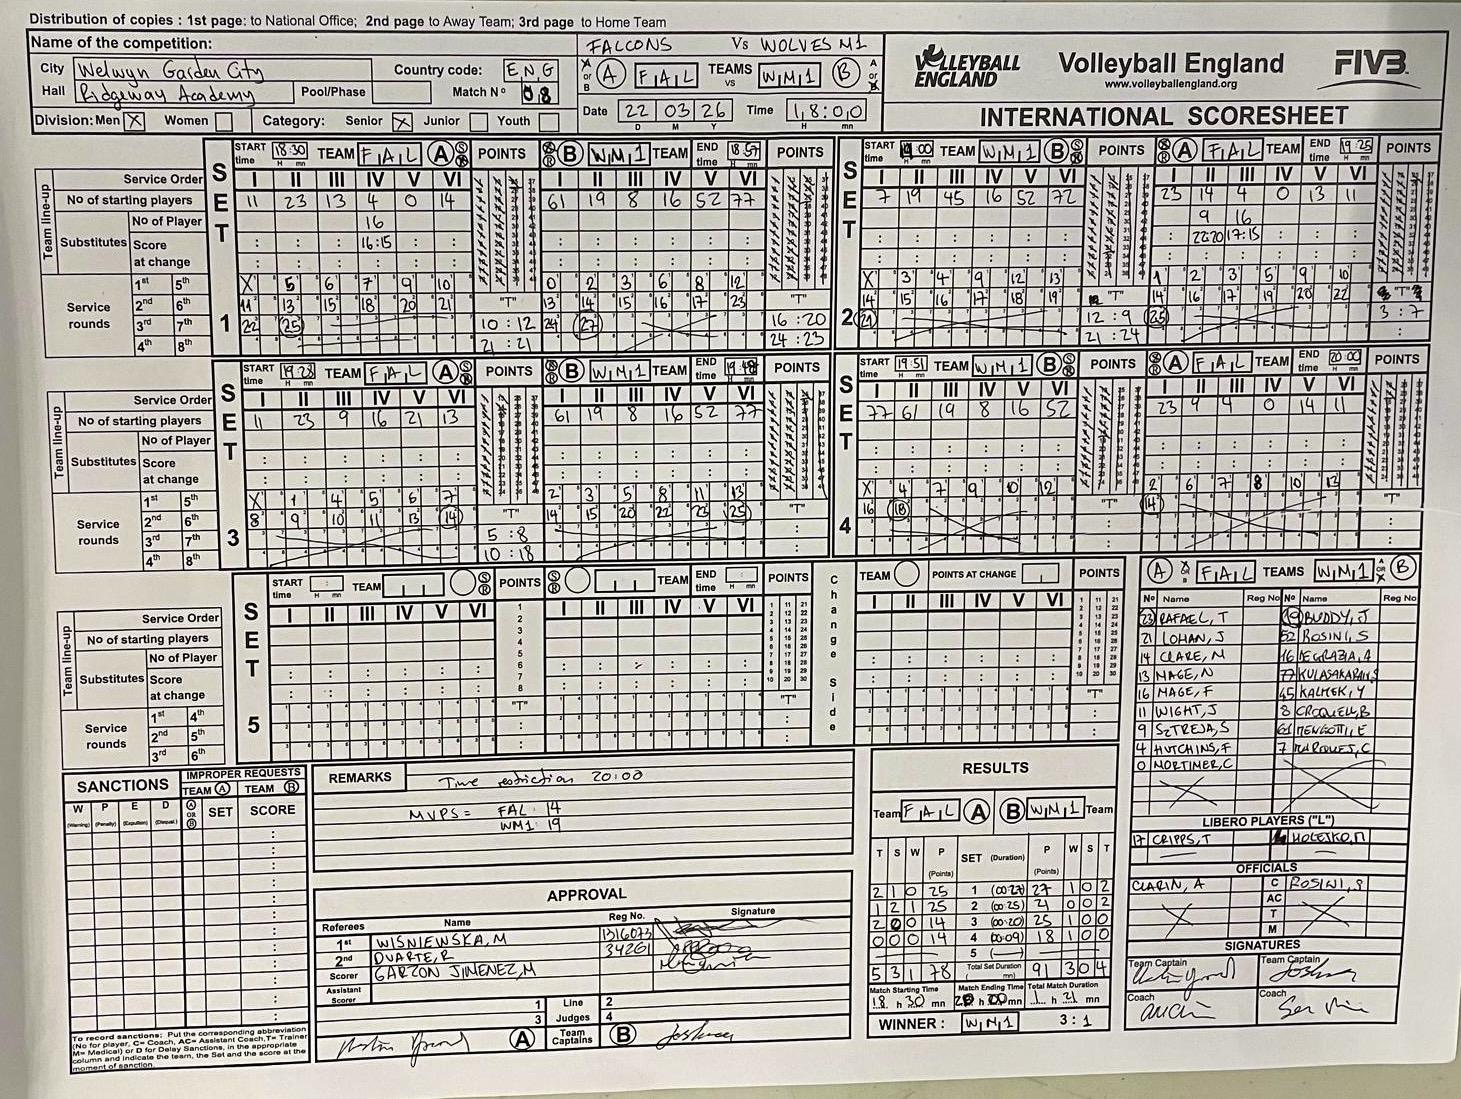 Distribution of copies : 1st page: to National Office; 2nd page to Away Team; 3rd page to Home Team
Name of the competition:
FALCONS Vs WOLVES M1
City Welwyn Garden City Country code: ENG
Hall Ridgeway Academy Pool/Phase Match Nº 08
A or B A FAL TEAMS vs WM1 B A or B
Division: Men X Women Category: Senior X Junior Youth
Date 22 03 26 Time 18:00
D M Y H mn
VOLLEYBALL ENGLAND
Volleyball England
www.volleyballengland.org
FIVB
INTERNATIONAL SCORESHEET
SET 1
START time 18:30 TEAM FAL A S R POINTS S R B WM1 TEAM END time 18:57 POINTS
Team line-up
Service Order I II III IV V VI I II III IV V VI
No of starting players 11 23 13 4 0 14 61 19 8 16 52 77
Substitutes No of Player 16
Score at change 16:15
Service rounds
1st 5th X 5 6 7 9 10 0 2 3 6 8 12
2nd 6th 11 13 15 18 20 21 "T" 13 14 15 16 17 23 "T"
3rd 7th 22 25 10:12 24 27 16:20
4th 8th 21:21 24:23
SET 2
START time 19:00 TEAM WM1 B S R POINTS S R A FAL TEAM END time 19:25 POINTS
I II III IV V VI I II III IV V VI
7 19 45 16 52 72 23 14 4 0 13 11
9 16
22:20 17:15
X 3 4 9 12 13 1 2 3 5 9 10
14 15 16 17 18 19 "T" 14 16 17 19 20 22 "T"
21 12:9 25 3:7
21:24
SET 3
START time 19:28 TEAM FAL A S R POINTS S R B WM1 TEAM END time 19:48 POINTS
Team line-up
Service Order I II III IV V VI I II III IV V VI
No of starting players 11 23 9 16 21 13 61 19 8 16 52 77
Substitutes No of Player
Score at change
Service rounds
1st 5th X 1 4 5 6 7 2 3 5 8 11 13
2nd 6th 8 9 10 11 13 14 "T" 14 15 20 22 23 25 "T"
3rd 7th 5:8
4th 8th 10:18
SET 4
START time 19:51 TEAM WM1 B S R POINTS S R A FAL TEAM END time 20:00 POINTS
I II III IV V VI I II III IV V VI
77 61 19 8 16 52 23 9 4 0 14 11
X 4 7 9 10 12 2 6 7 8 10 12
16 18 "T" 14 "T"
SET 5
START time TEAM S R POINTS S R TEAM END time POINTS
Change Side
TEAM POINTS AT CHANGE POINTS
Team line-up
Service Order I II III IV V VI I II III IV V VI I II III IV V VI
No of starting players
Substitutes No of Player
Score at change
Service rounds
1st 4th "T" "T" "T"
2nd 5th
3rd 6th
A A or B FAL TEAMS WM1 A or B B
Nº Name Reg No Nº Name Reg No
23 RAFAEL, T 19 BUDDY, J
21 LOHAN, J 52 ROSINI, S
14 CLARE, M 16 DEGRAZIA, A
13 MAGE, N 77
16 MAGE, F 45 KALMEK, Y
11 WIGHT, J 8 CROQUELL, B
9 SZTREJA, S 61 MENGOTTI, E
4 HUTCHINS, F 7 MARQUES, C
0 MORTIMER, C
LIBERO PLAYERS ("L")
17 CRIPPS, T HOLEJKO, M
OFFICIALS
CLARIN, A C ROSINI, S
AC
T
M
SIGNATURES
Team Captain Team Captain
Coach Coach
SANCTIONS
W P E D
(Warning) (Penalty) (Expulsion) (Disqual.)
IMPROPER REQUESTS
TEAM A TEAM B
A OR B SET SCORE
To record sanctions: Put the corresponding abbreviation
(No for player, C= Coach, AC= Assistant Coach, T= Trainer
M= Medical) or D for Delay Sanctions, in the appropriate
column and indicate the team, the Set and the score at the
moment of sanction.
REMARKS
Time restriction 20:00
MVPS = FAL: 14
WM1: 19
APPROVAL
Referees Name Reg No. Signature
1st WISNIEWSKA, M 1316073
2nd DUARTE, R 34261
Scorer GARZON JIMENEZ, M
Assistant Scorer
1 Line 2
3 Judges 4
A Team Captains B
RESULTS
Team FAL A B WM1 Team
T S W P (Points) SET (Duration) P (Points) W S T
2 1 0 25 1 (00:27) 27 1 0 2
1 2 1 25 2 (00:25) 21 0 0 2
2 0 0 14 3 (00:20) 25 1 0 0
0 0 0 14 4 (00:09) 18 1 0 0
5 ( )
5 3 1 78 Total Set Duration (mn) 91 3 0 4
Match Starting Time Match Ending Time Total Match Duration
18 h 30 mn 20 h 00 mn 1 h 21 mn
WINNER: WM1 3:1